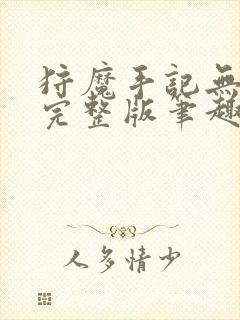 狩魔手記無
完整版筆趣
人多情少